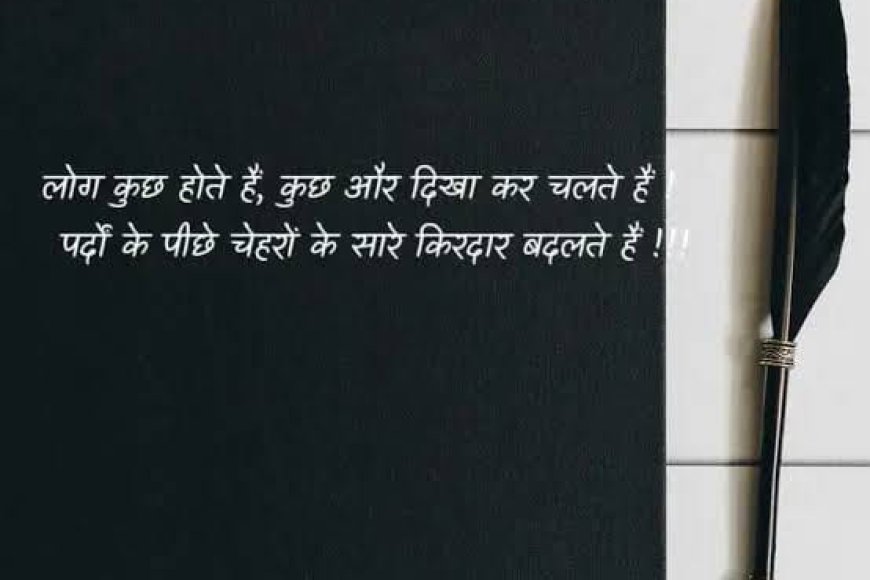 लोग कुछ होते हैं, कुछ और दिखा कर चलते हैं !
पर्दों के पीछे चेहरों के सारे किरदार बदलते हैं !!!